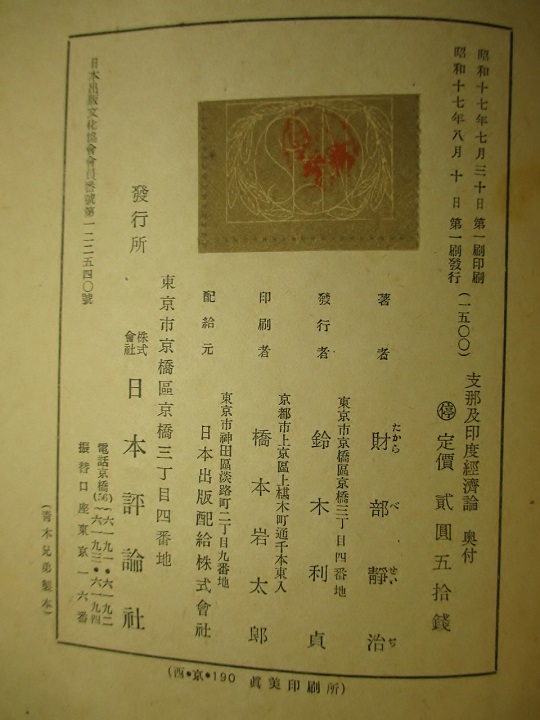 昭和十七年七月三十日 第一刷印刷
昭和十七年八月十日 第一刷發行 (一五〇〇)
支那及印度經濟論 奥付
㊡ 定價 貳圓五拾錢
著者 財部靜治
たから べ せい ぢ
東京市京橋區京橋三丁目四番地
發行者 鈴木利貞
京都市上京區上椹木町通千本東入
印刷者 橋本岩太郎
東京市神田區淡路町二丁目九番地
配給元 日本出版配給株式會社
東京市京橋區京橋三丁目四番地
發行所 株式會社 日本評論社
電話京橋(56)六一九一・六一九二
六一九三・六一九四
振替口座東京一六番
日本出版文化協會會員番號第一二二五四〇號
(靑木兄弟製本)
(西・京・190 眞美印刷所)